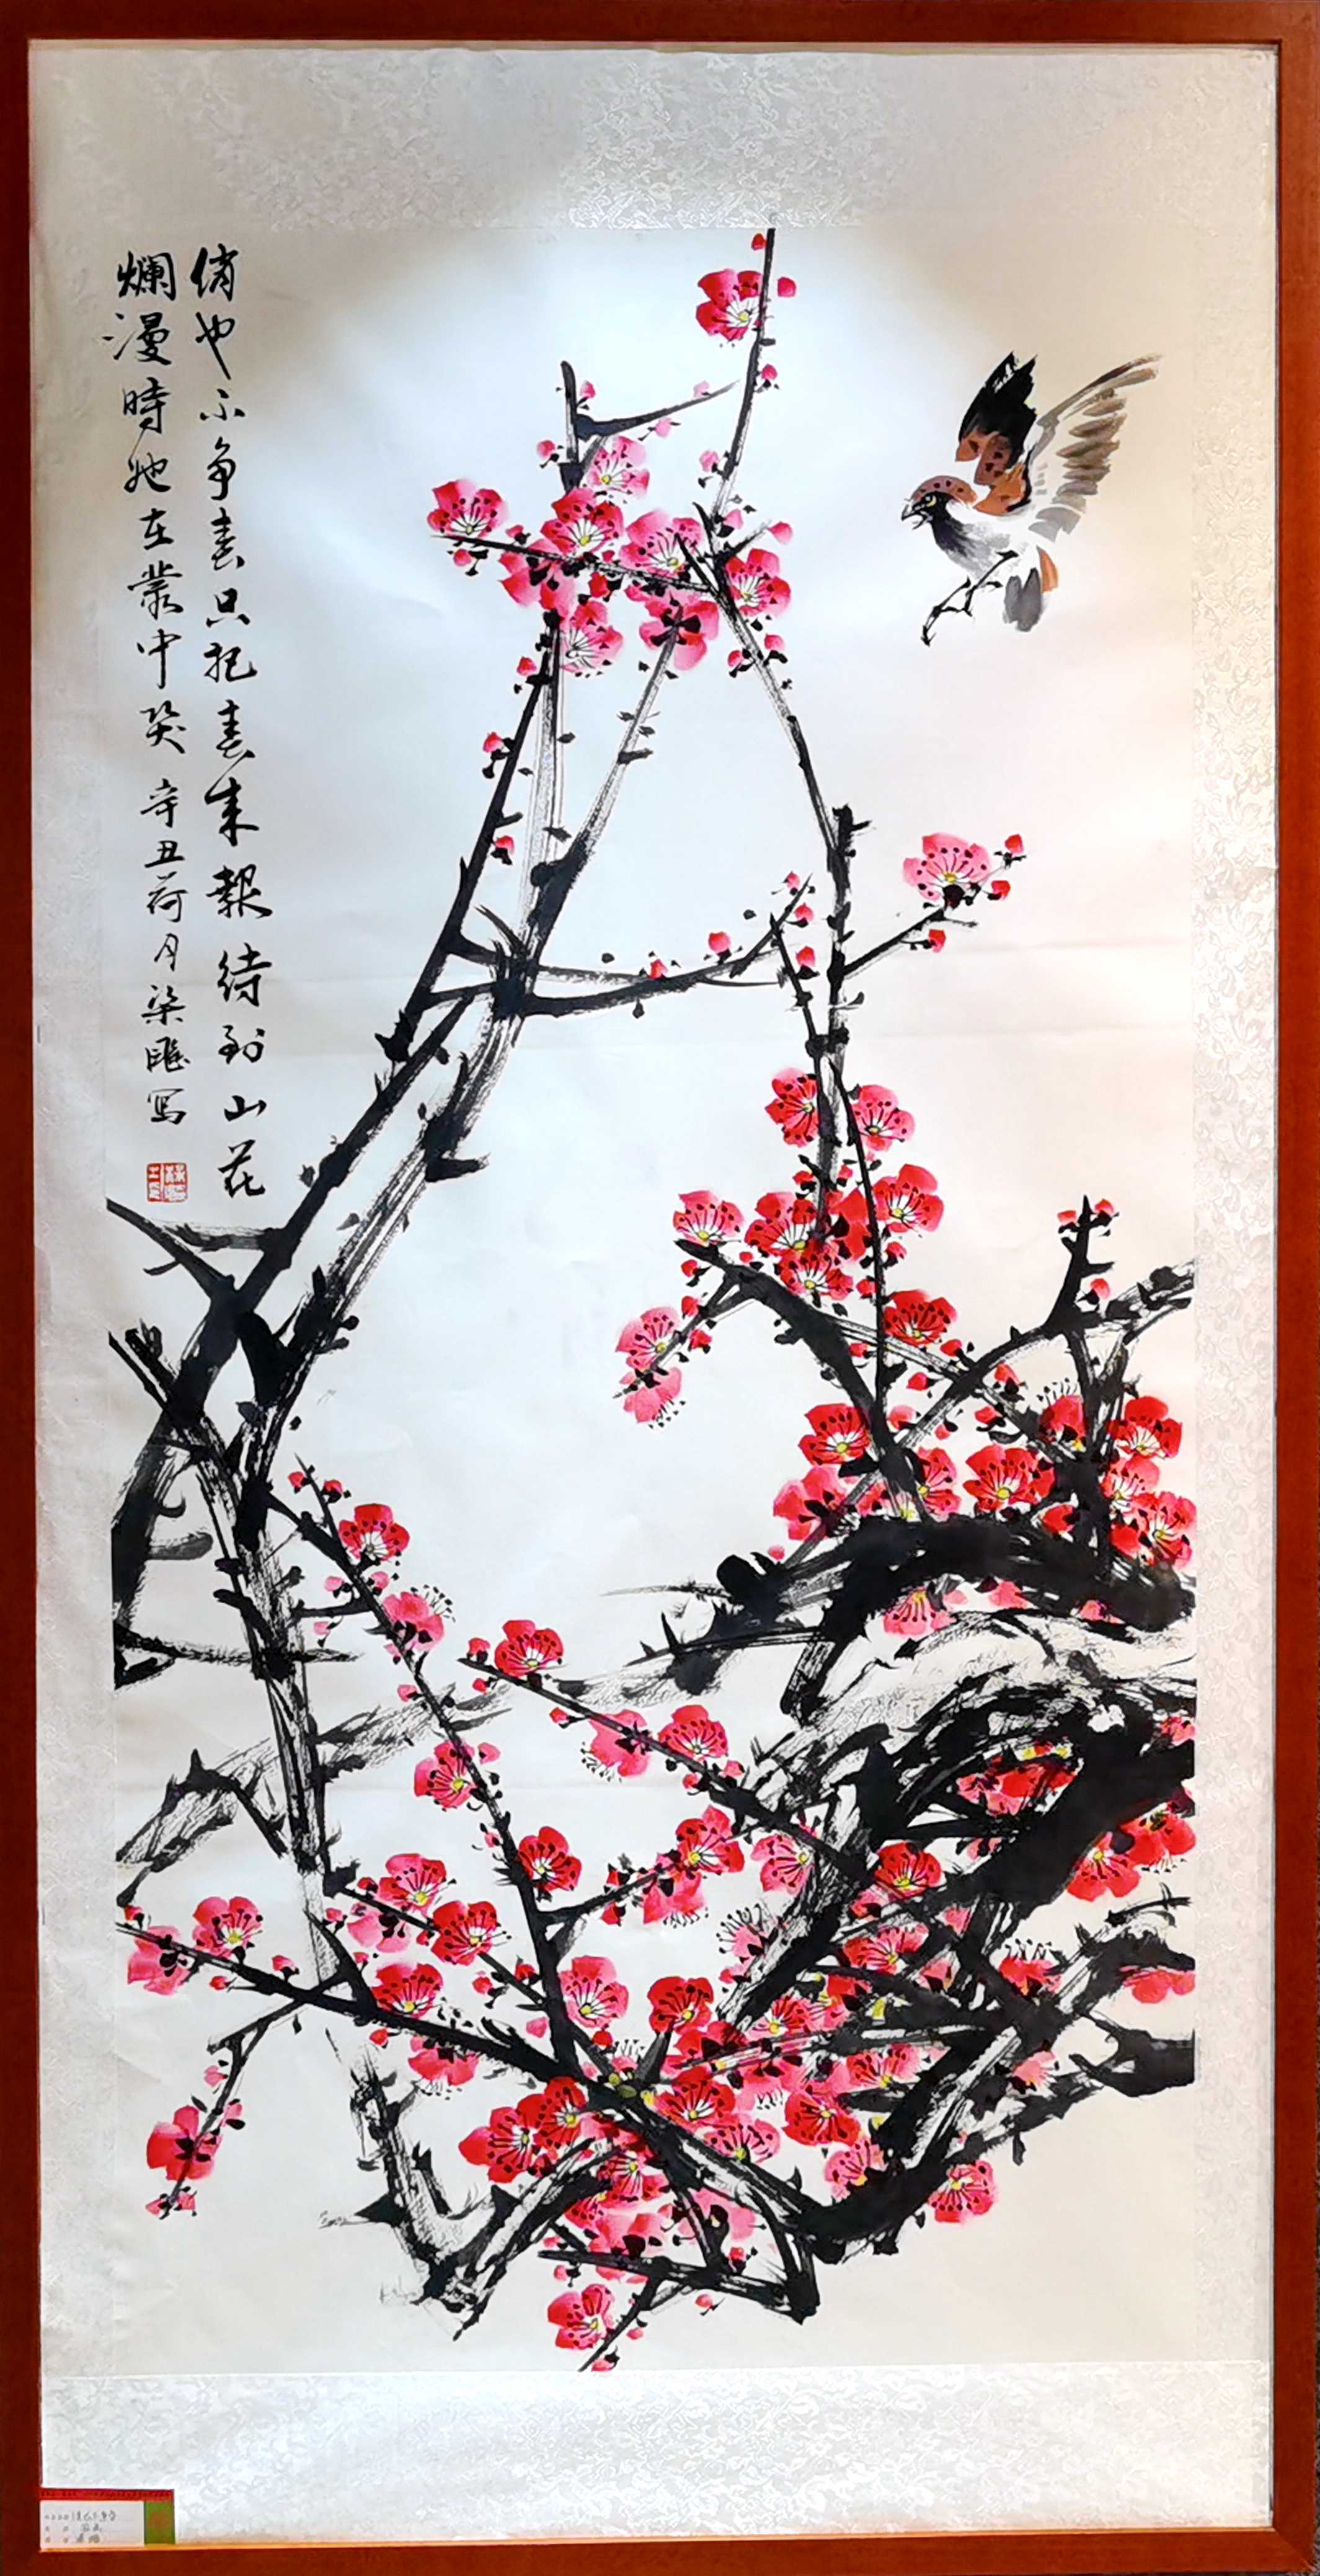 俏也不争春只把春来報待到山花
爛漫時她在叢中笑 辛丑荷月梁飚写